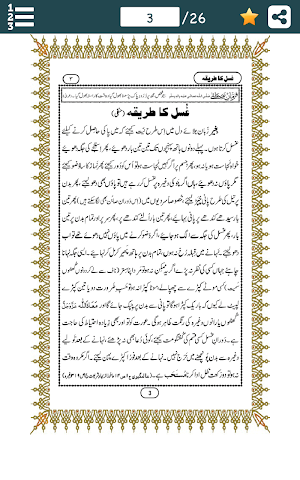 1
2
3
3
/26
غسل کا طریقہ
۳
غُسل کا طریقہ (حنفی)
بغیر زَبان ہلائے دل میں اِس طرح نیّت کیجئے کہ میں پاکی حاصل کرنے کیلئے
غسل کرتا ہوں۔ پہلے دونوں ہاتھ پہنچوں تک تین تین بار دھوئیے، پھر اِستنجے کی جگہ دھوئیے
خواہ نَجاست ہو یا نہ ہو، پھر جسم پر اگر کہیں نَجاست ہو تو اُس کو دُور کیجئے پھر نَماز کا سا وُضو کیجئے
مگر پاؤں نہ دھوئیے، ہاں اگر چوکی وغیرہ پر غسل کررہے ہیں تو پاؤں بھی دھو لیجئے، پھر بدن
پر تیل کی طرح پانی چپڑ لیجئے، خُصوصاً سردیوں میں (اِس دوران صابُن بھی لگا سکتے ہیں) پھر تین
بار سیدھے کندھے پر پانی بہائیے، پھر تین بار اُلٹے کندھے پر، پھر سر پر اور تمام بدن پر تین
بار، پھر غسل کی جگہ سے الگ ہو جائیے، اگر وُضو کرنے میں پاؤں نہیں دھوئے تھے تو اب
دھو لیجئے۔ نہانے میں قبلہ رُخ نہ ہوں، تمام بدن پر ہاتھ پھیر کر مل کر نہائیے۔ ایسی جگہ نہانا
چاہئے جہاں کسی کی نظر نہ پڑے اگر یہ ممکن نہ ہو تو مرد اپنا ستر ناف سے لے کر دونوں گھٹنوں
سمیت کسی موٹے کپڑے سے چھپا لے، موٹا کپڑا نہ ہو تو حسبِ ضرورت دو یا تین کپڑے
لپیٹ لے کیوں کہ باریک کپڑا ہوگا تو پانی سے بدن پر چپک جائے گا اور مَعَاذَاللہ
گھٹنوں یا رانوں وغیرہ کی رنگت ظاہر ہوگی۔ عورت کو تو اور بھی زیادہ احتیاط کی حاجت
ہے۔ دَورانِ غسل کسی قسم کی گفتگو مت کیجئے، کوئی دُعا بھی نہ پڑھئے، نہانے کے بعد تولیے
وغیرہ سے بدن پونچھنے میں حَرَج نہیں۔ نہانے کے بعد فوراً کپڑے پہن لیجئے۔ اگر مکروہ وقت
نہ ہو تو دو رَکعت نفل ادا کرنا مُستَحَب ہے۔
3